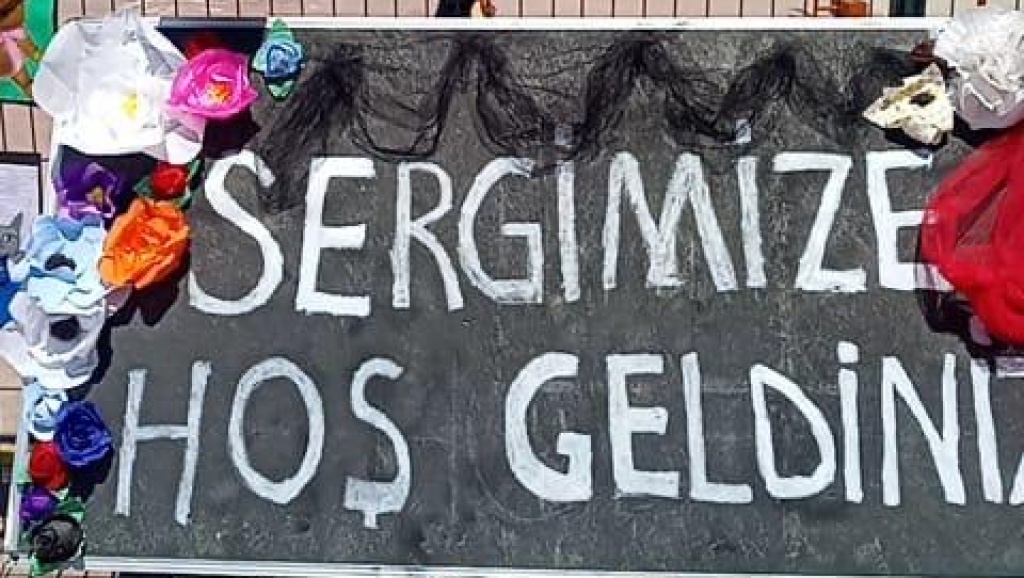 SERGİMİZE
HOŞ GELDİNİZ